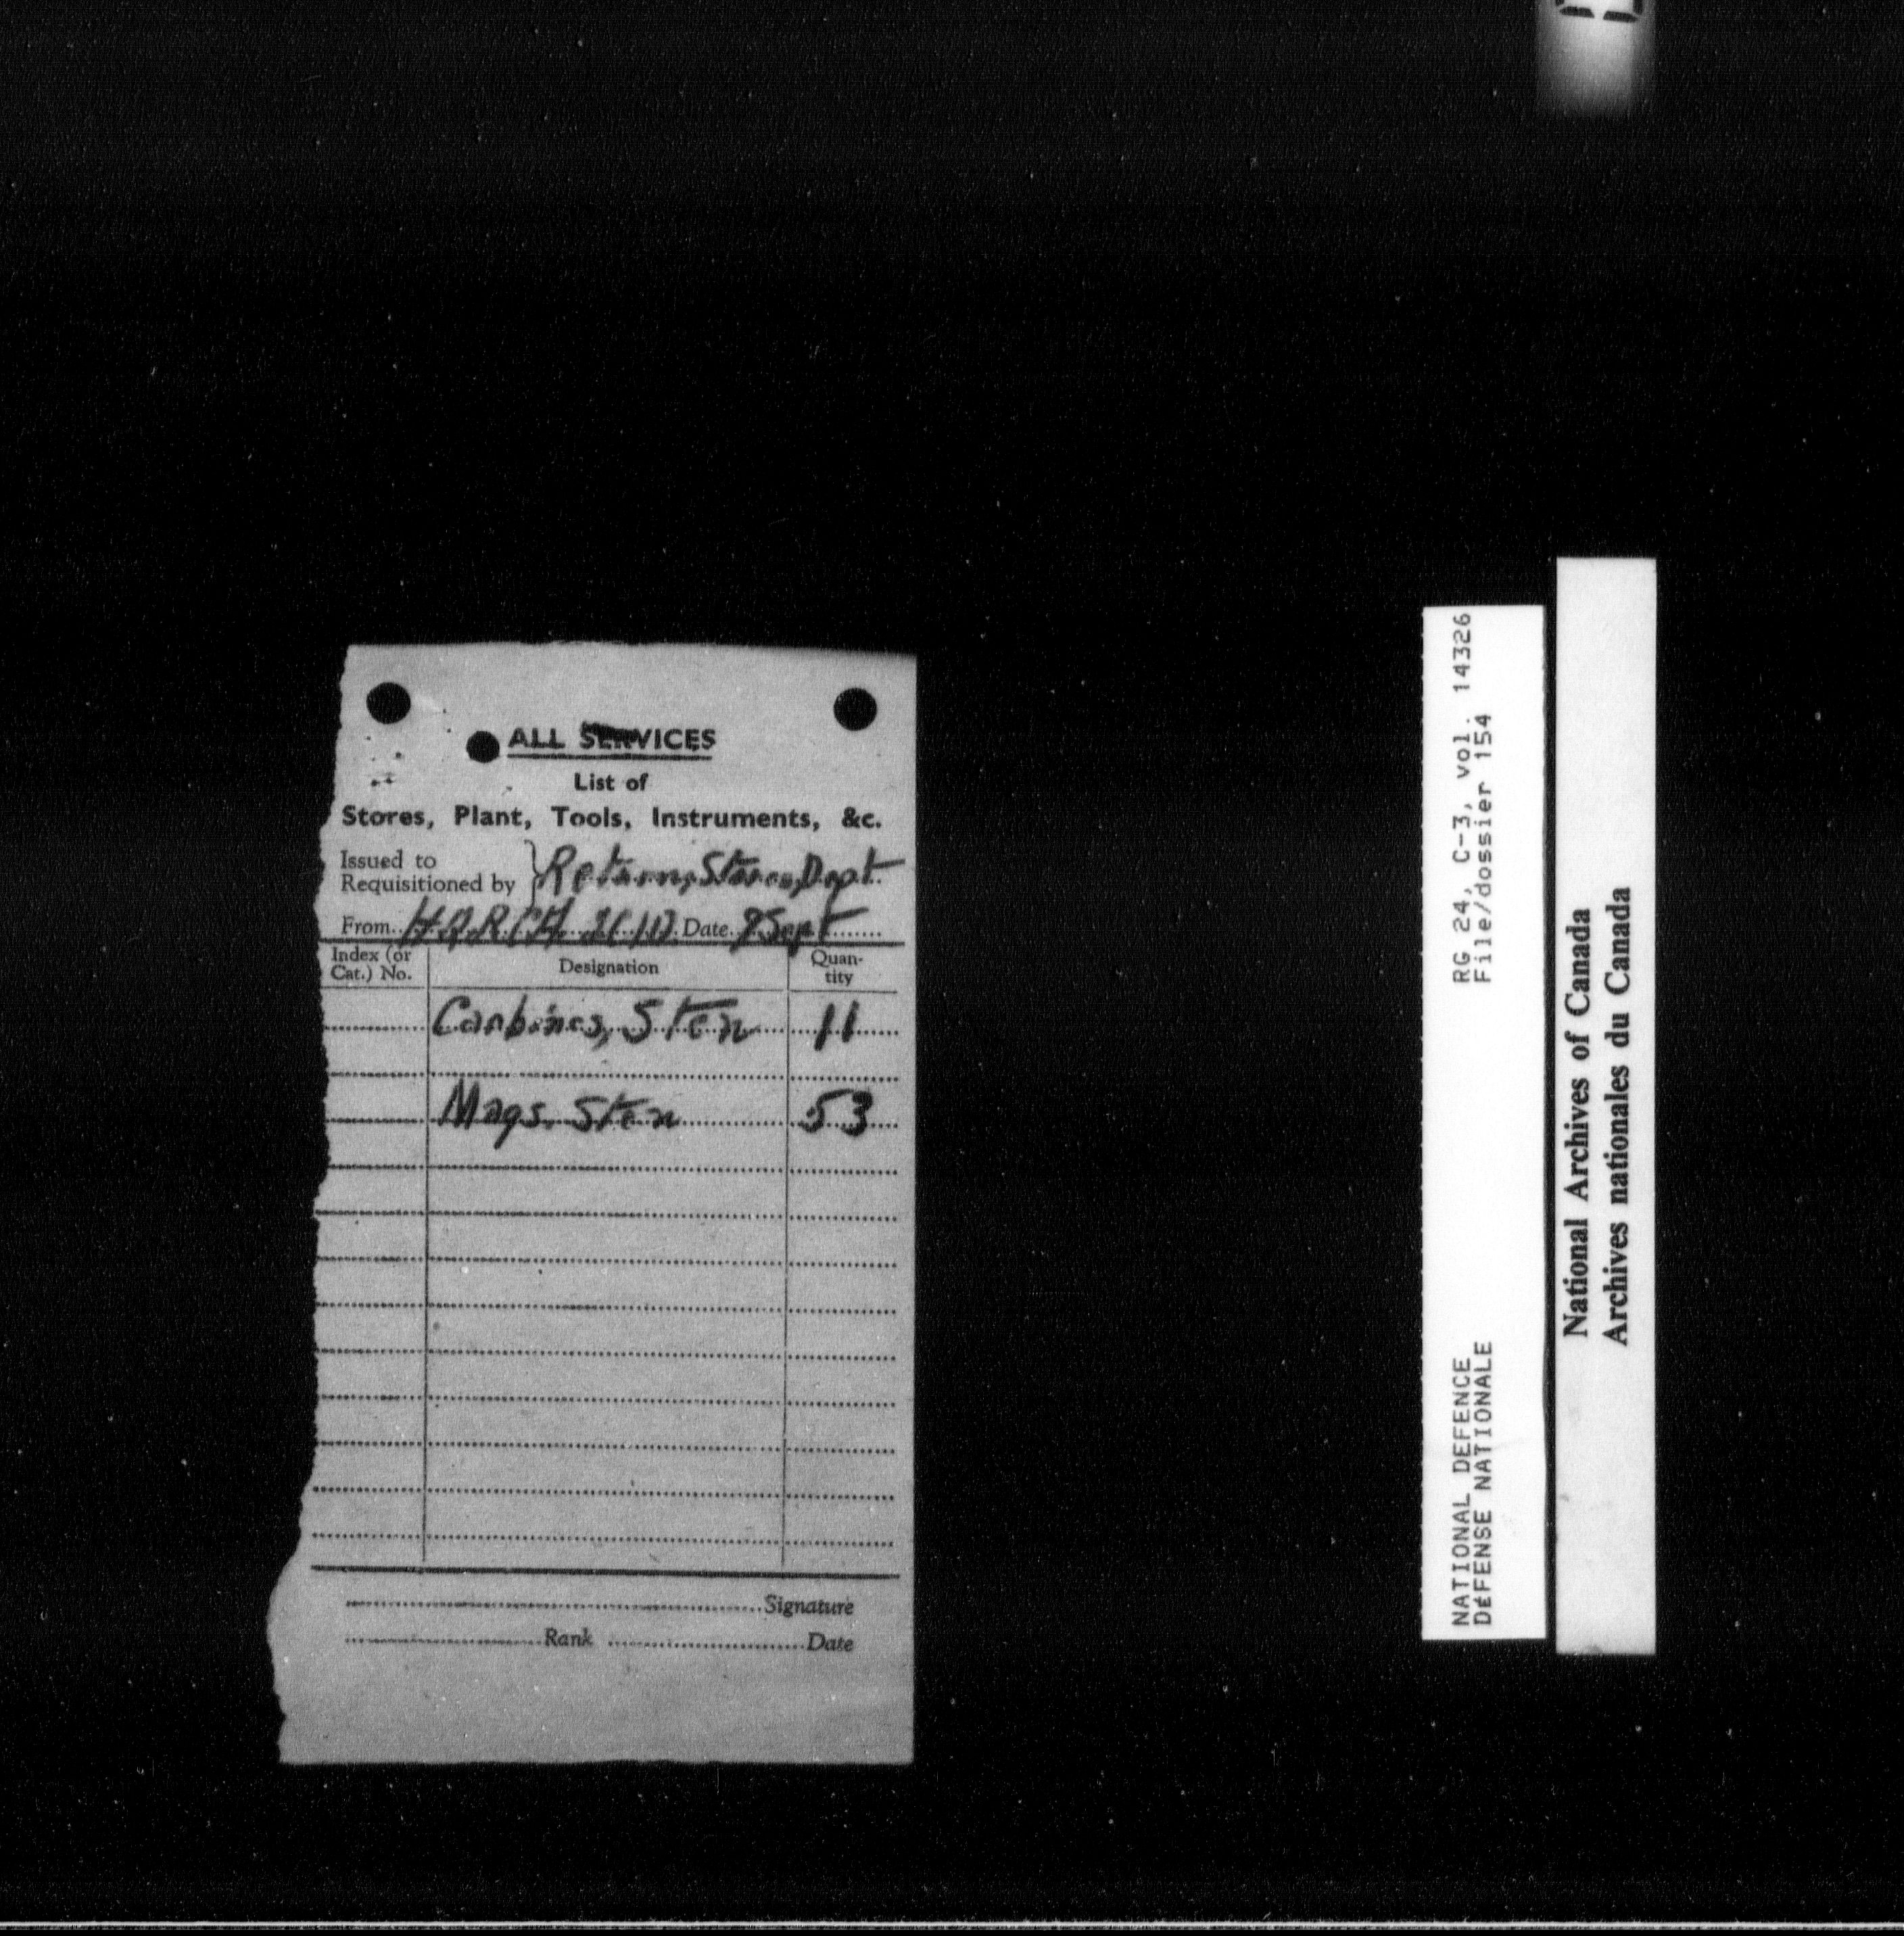 ALL SERVICES
List of
Stores, Plant, Tools, Instruments, &c.
Issued to
Requisitioned by } Return, Stores, Dept
From Date 9 Sept
Index (or Cat.) No. Designation Quan-tity
Carbines, Sten 11
Mags. Sten 53
Signature
Rank Date
RG 24, C-3, vol. 14326
File/dossier 154
NATIONAL DEFENCE
DÉFENSE NATIONALE
National Archives of Canada
Archives nationales du Canada